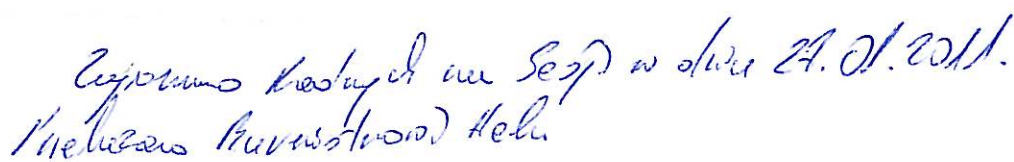 Zapoznano Radnych na Sesji w dniu 27.01.2011.
Przekazano Burmistrzowi Helu